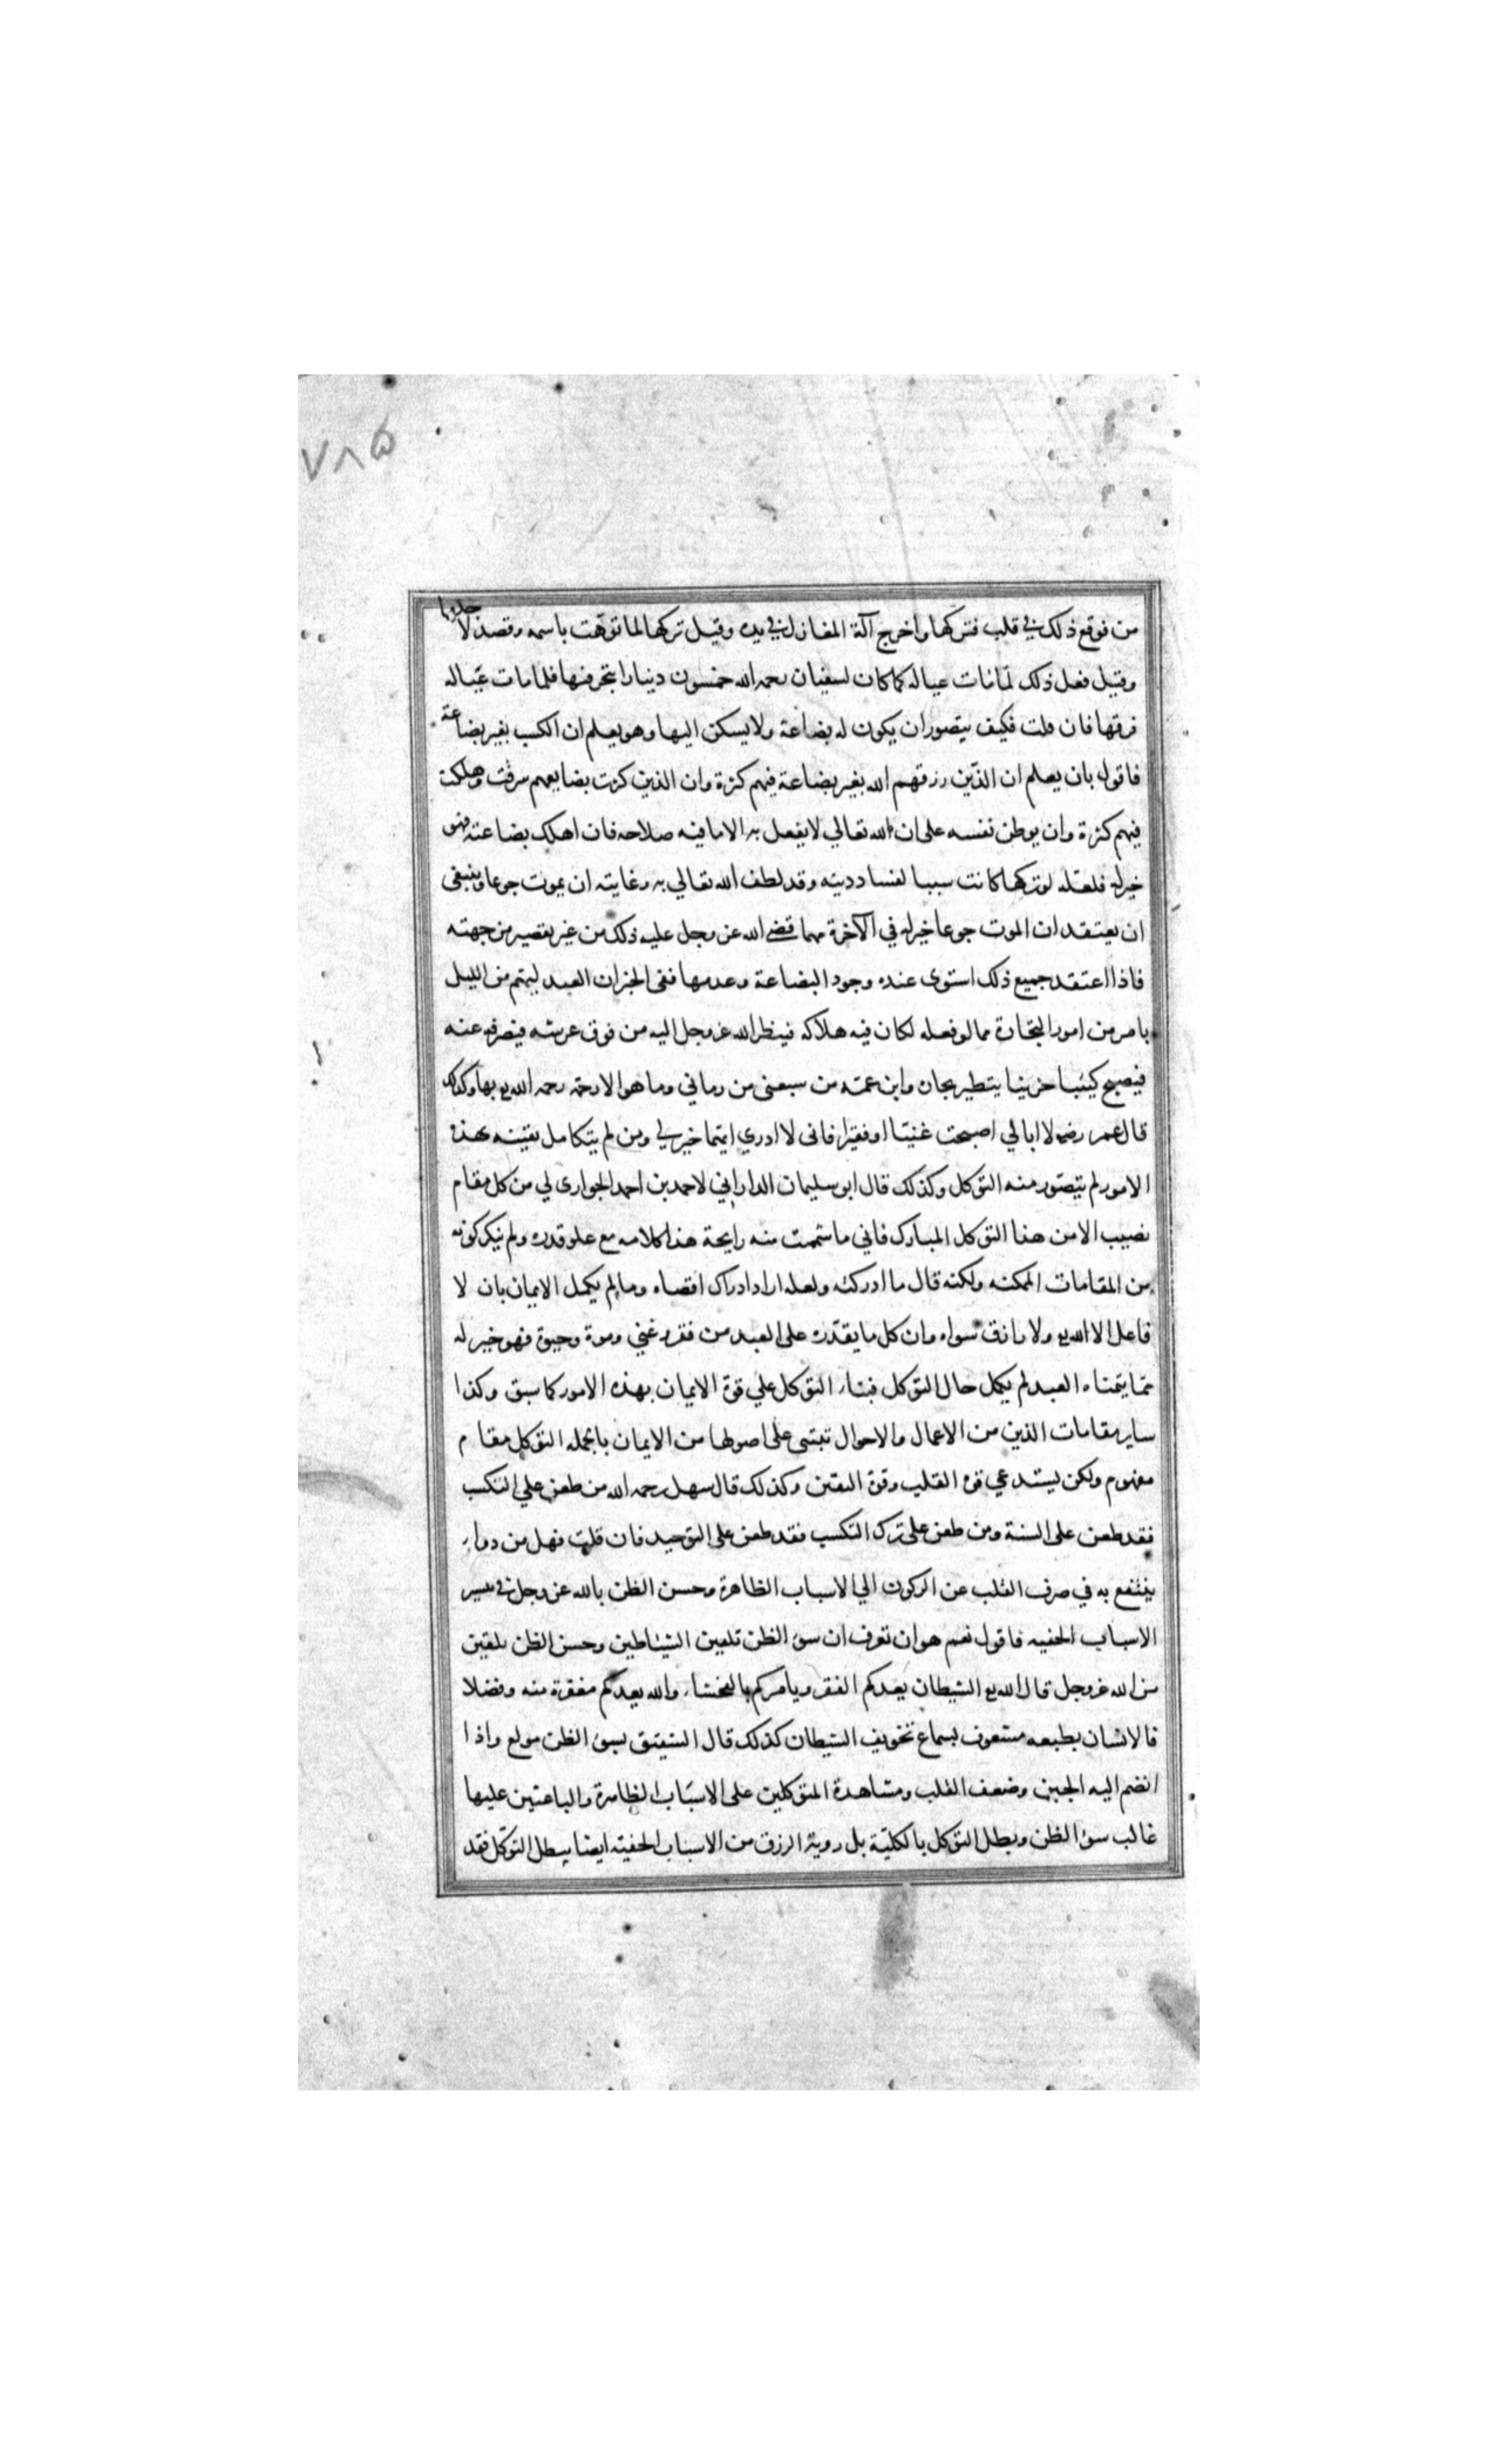 ٧٨٥
من فوقع ذلك في قلبه فتركها واخرج آلة المغازل في يده وقيل تركها لما نوّهت باسمه وقصد لاجلها
وقيل فعل ذلك لمّا مات عياله كما كان لسفيان رحمه الله خمسون دينارا يتجر فيها فلما مات عيّاله
فرقها فان قلت فكيف يتصور ان يكون له بضاعة ولا يسكن اليها وهو يعلم ان الكسب بغير بضاعة
فاقول بان يعلم ان الذّين رزقهم الله بغير بضاعة فيهم كثرة وان الذين كثرت بضايعهم سرقت وهلكت
فيهم كثرة وان يوطن نفسه على ان الله تعالي لا يفعل به الا ما فيه صلاحه فان اهلك بضاعته فهو
خير له فلعلّه لو تركها كانت سببا لفساد دينه وقد لطف الله تعالي به وغايته ان يموت جوعا وينبغي
ان يعتقد ان الموت جوعا خير له في الآخرة مهما قضي الله عز وجل عليه ذلك من غير تقصير من جهته
فاذا اعتقد جميع ذلك استوى عنده وجود البضاعة وعدمها ففى الخبر ان العبد ليهتم من الليل
بامر من امور التجارة مما لو فعله لكان فيه هلاكه فينظر الله عز وجل اليه من فوق عرشه فيصرفه عنه
فيصبح كئيبا حزينا يتطير بجاره وابن عمته من سبعنى من رماني وما هو الا رحمة رحمه الله بها وكذلك
قال عمر رضه لا ابالي اصبحت غنيّا او فقيرا فانى لا ادري ايّهما خير لي ومن لم يتكامل يقينه بهذه
الامور لم يتصوّر منه التوكل وكذلك قال ابو سليمان الداراني لاحمد بن احمد الجواري لي من كل مقام
نصيب الا من هذا التوكل المبارك فاني ما شممت منه رايحة هذا كلامه مع علو قدره ولم ينكر كونه
من المقامات الممكنه ولكنه قال ما ادركته ولعله اراد ادراك اقصاه وما لم يكمل الايمان بان لا
فاعل الا الله ولا رازق سواه وان كل ما يقدّره على العبد من فقر وغني وموت وحيوة فهو خير له
ممّا يتمناه العبد لم يكمل حال التوكل فبناء التوكل علي قوة الايمان بهذه الامور كما سبق وكذا
ساير مقامات الدّين من الاعمال والاحوال تبتنى على اصولها من الايمان بالجمله التوكل مقام
مفهوم ولكن يستدعي قوة القلب وقوة اليقين وكذلك قال سهل رحمه الله من طعن علي التكسب
فقد طعن على السنة ومن طعن على ترك التكسب فقد طعن على التوحيد فان قلت فهل من دواء
ينتفع به في صرف القلب عن الركون الي الاسباب الظاهرة وحسن الظن بالله عز وجل في تيسير
الاسباب الخفيه فاقول نعم هو ان تعرف ان سوء الظن تلقين الشيّاطين وحسن الظن تلقين
من الله عز وجل قال الله الشيطان يعدكم الفقر ويامركم بالفحشاء والله يعدكم مغفرة منه وفضلا
فالانسان بطبعه مشعوف بسماع تخويف الشيطان كذلك قال الشفيق بسوء الظن مولع واذا
انضم اليه الجبن وضعف القلب ومشاهدة المتوكلين على الاسبَاب الظاهرة والباعثين عليها
غالب سوء الظن وبطل التوكل بالكليّة بل روية الرزق من الاسباب الخفيّه ايضا يبطل التوكل فقد